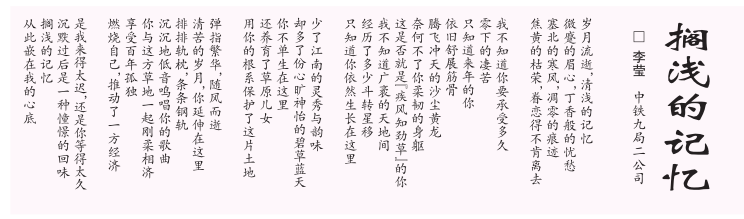 搁浅的记忆
□ 李莹 中铁九局二公司
岁月流逝，清浅的记忆
微蹙的眉心，丁香般的忧愁
塞北的寒风，凋零的痕迹
焦黄的枯荣，眷恋得不肯离去
我不知道你要承受多久
零下的凄苦
只知道来年的你
依旧舒展筋骨
腾飞冲天的沙尘黄龙
奈何不了你柔韧的身躯
这是否就是『疾风知劲草』的你
我不知道广袤的天地间
经历了多少斗转星移
只知道你依然生长在这里
少了江南的灵秀与韵味
却多了份心旷神怡的碧草蓝天
你不单生在这里
还养育了草原儿女
用你的根系保护了这片土地
弹指繁华，随风而逝
清苦的岁月，你延伸在这里
排排轨枕，条条钢轨
沉沉地低音鸣唱你的歌曲
你与这方草地一起刚柔相济
享受百年孤独
燃烧自己，推动了一方经济
是我来得太迟，还是你等得太久
沉默过后是一种憧憬的回味
搁浅的记忆
从此嵌在我的心底